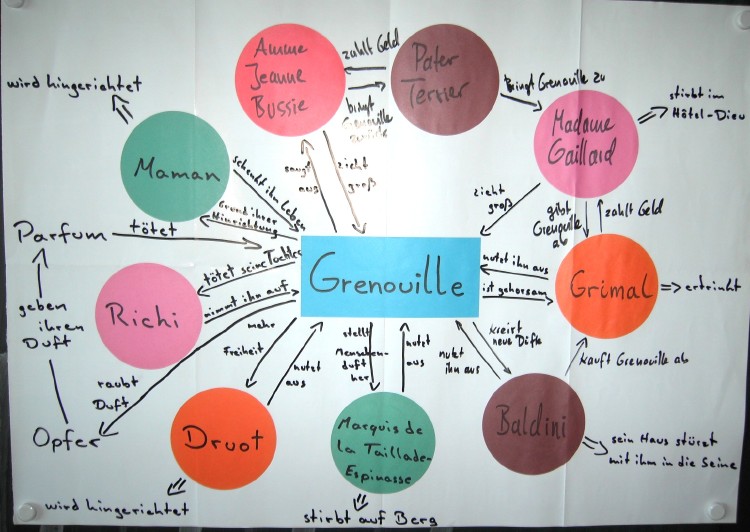 Amme
Jeanne
Bussie
zahlt Geld
bringt
Grenouille
zurück
Pater
Terrier
bringt Grenouille zu
Madame
Gaillard
stirbt im
Hôtel-Dieu
wird hingerichtet
Maman
schenkt ihm Leben
Grund ihrer
Hinrichtung
saugt
aus
zieht
groß
zieht
groß
gibt
Grenouille
ab
zahlt Geld
Parfum
tötet
Grenouille
nutzt ihn aus
ist gehorsam
Grimal
ertrinkt
geben
ihren
Duft
Richi
tötet seine Tochter
nimmt ihn auf
raubt
Duft
Opfer
mehr
Freiheit
nutzt
aus
Druot
wird hingerichtet
stellt
Menschen-
duft
her
nutzt
aus
Marquis de
la Taillade-
Espinasse
stirbt auf Berg
nutzt
ihn aus
kreirt
neue Düfte
Baldini
kauft Grenouille ab
sein Haus stürzt
mit ihm in die Seine